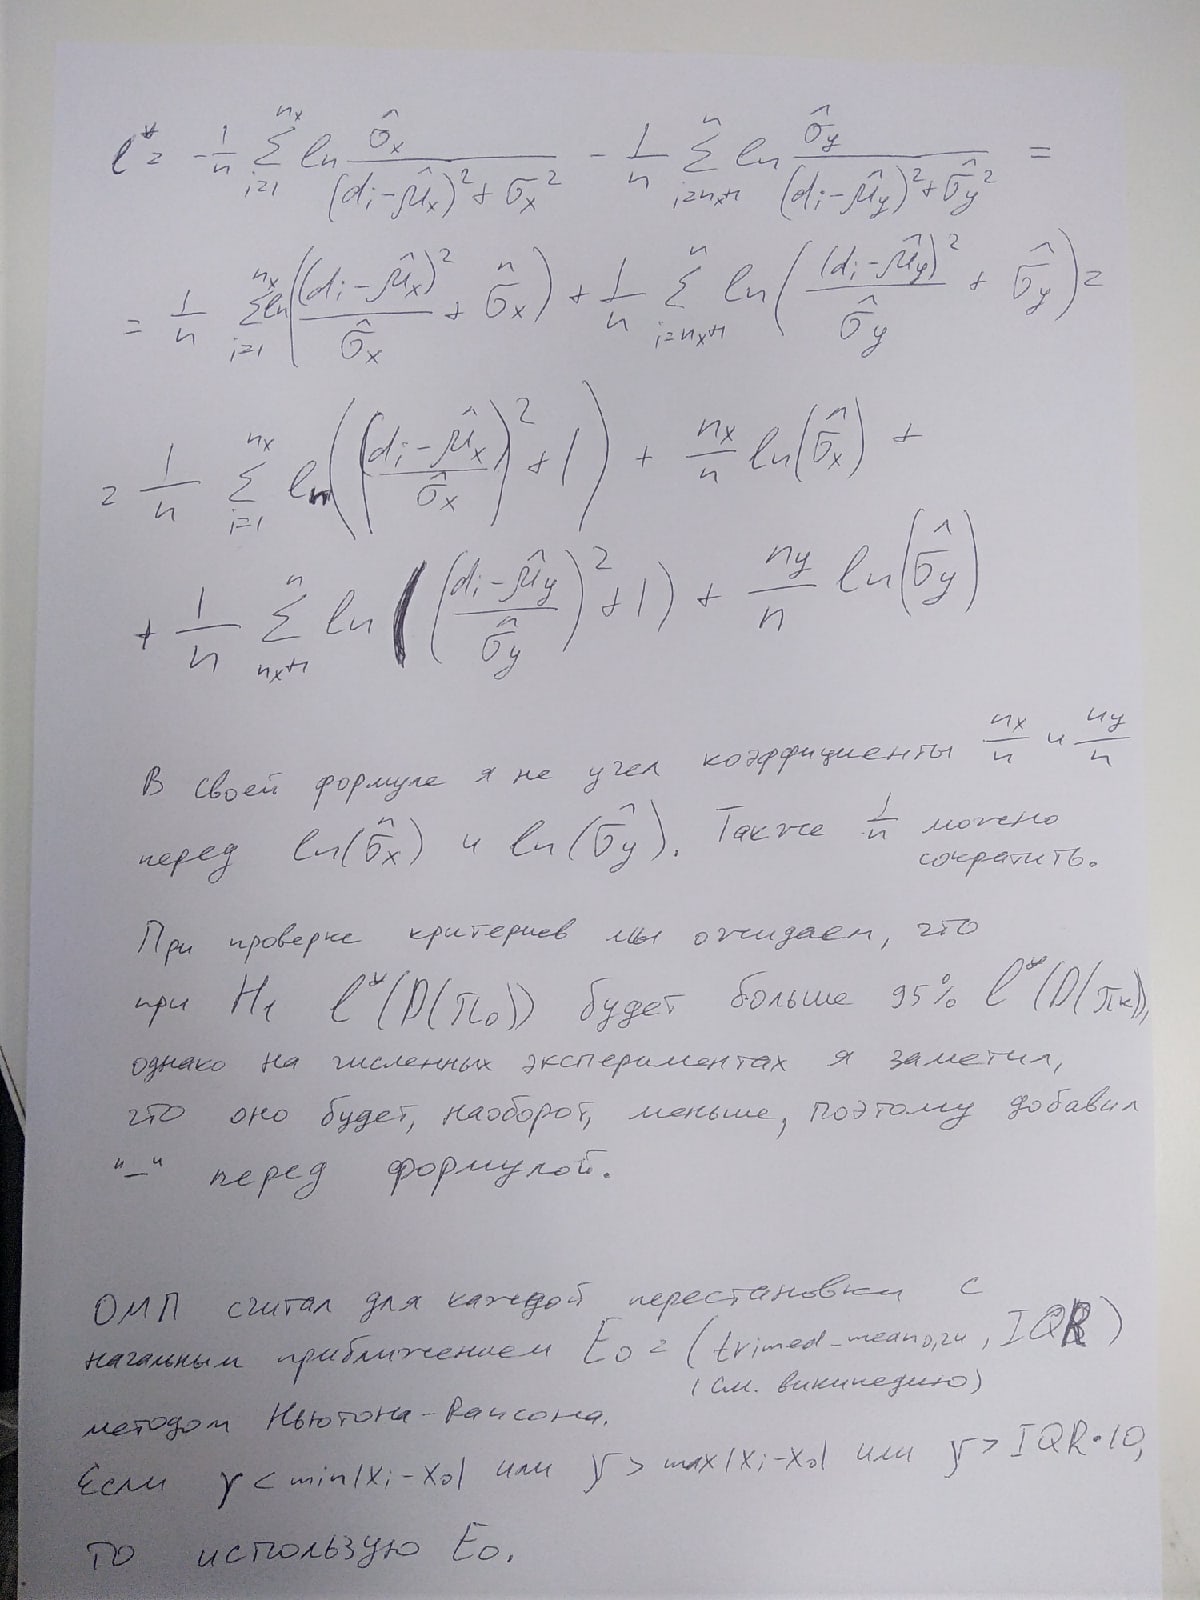 l* = -1/n Σ_{i=1}^{n_x} ln σ̂_x / ((d_i - μ̂_x)² + σ̂_x²) - 1/n Σ_{i=n_x+1}^{n} ln σ̂_y / ((d_i - μ̂_y)² + σ̂_y²) =
= 1/n Σ_{i=1}^{n_x} ln((d_i - μ̂_x)² / σ̂_x + σ̂_x) + 1/n Σ_{i=n_x+1}^{n} ln((d_i - μ̂_y)² / σ̂_y + σ̂_y) =
= 1/n Σ_{i=1}^{n_x} ln(((d_i - μ̂_x) / σ̂_x)² + 1) + n_x/n ln(σ̂_x) +
+ 1/n Σ_{n_x+1}^{n} ln(((d_i - μ̂_y) / σ̂_y)² + 1) + n_y/n ln(σ̂_y)
В своей формуле я не учел коэффициенты n_x/n и n_y/n
перед ln(σ̂_x) и ln(σ̂_y). Также 1/n можно
сократить.
При проверке критериев мы ожидаем, что
при H₁ l*(D(π₀)) будет больше 95% l*(D(π_k)),
однако на численных экспериментах я заметил,
что оно будет, наоборот, меньше, поэтому добавил
"–" перед формулой.
ОМП считал для каждой перестановки с
начальным приближением E₀ = (trimed_mean_{0,24}, IQR)
(см. википедию)
методом Ньютона-Рапсона.
Если γ < min|x_i - x₀| или γ > max|x_i - x₀| или γ > IQR·10,
то использую E₀.